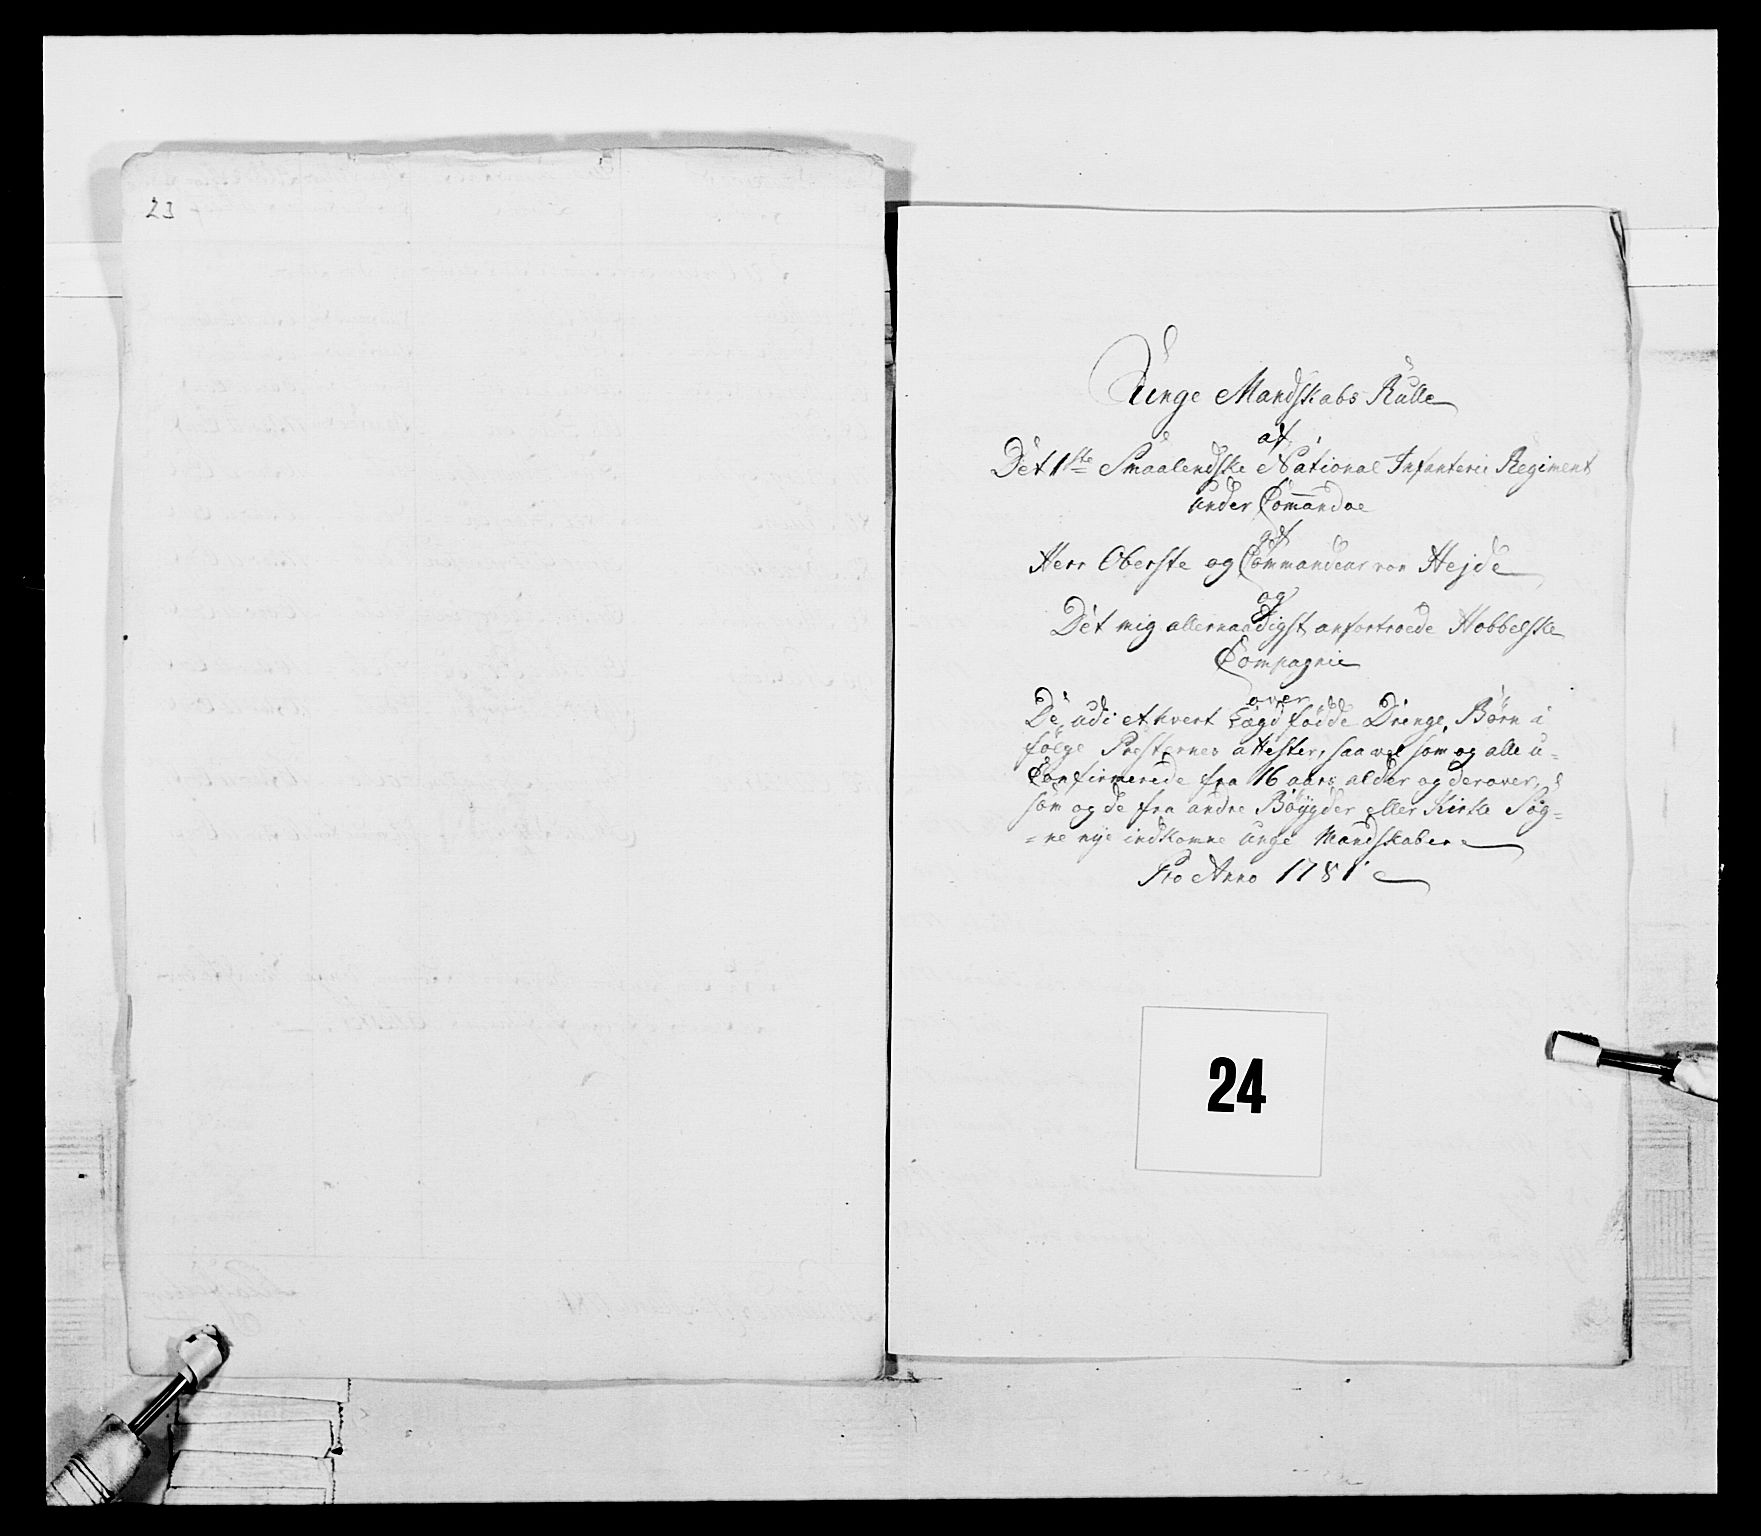 23
Unge Mandskabs Rulle
af
Det 1ste Smaalendske National Infanterie Regiment
under Commandoe
af
Herr Oberste og Commandeur von Hejde
og
Det mig allernaadigst anfortroede Hobbelske
Compagnie
over
De udi ethvert Lægd fødde Drenge Børn i
følge Presternes attester, saavel som og alle u-
Confirmerede fra 16 aars alder og derover,
som og de fra andre Bøygder eller Kirke Sog-
-ne nye indkomne unge Mandskaber
Pro Anno 1781
24